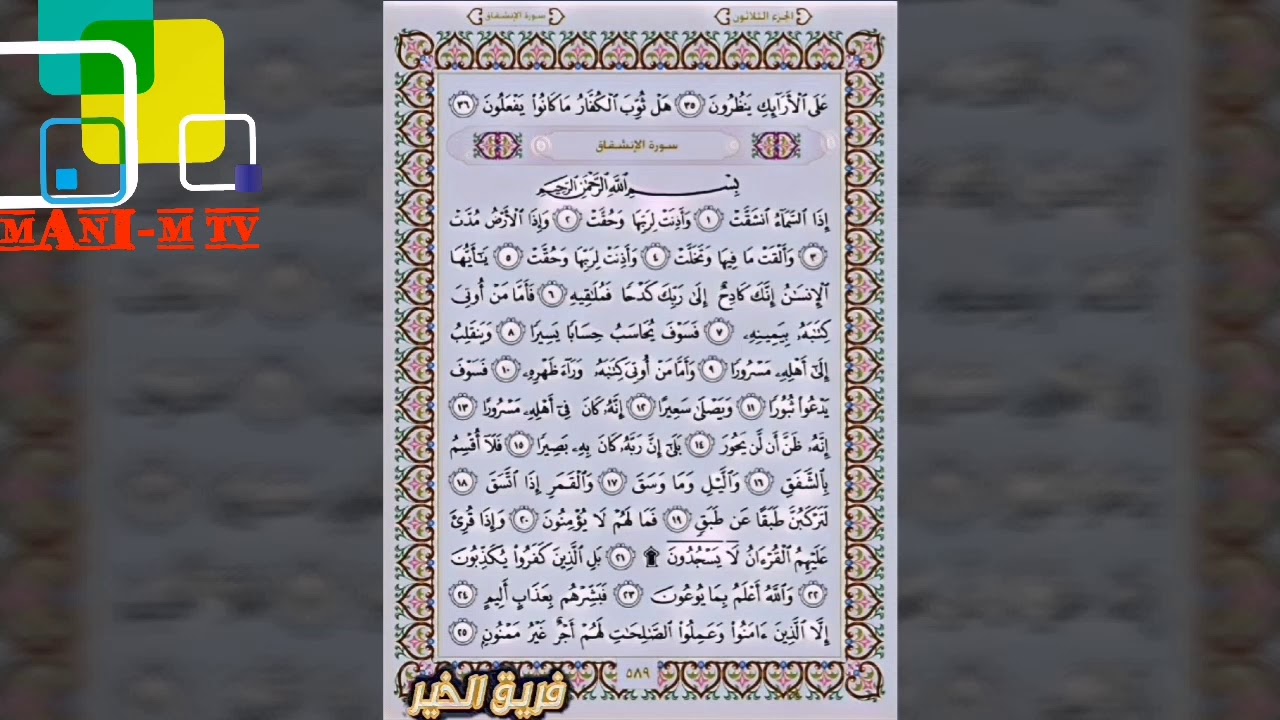 الجزء الثلاثون
سورة الإنشقاق
عَلَى ٱلْأَرَآئِكِ يَنظُرُونَ ٣٥ هَلْ ثُوِّبَ ٱلْكُفَّارُ مَا كَانُوا۟ يَفْعَلُونَ ٣٦
سورة الإنشقاق
بِسْمِ ٱللَّهِ ٱلرَّحْمَٰنِ ٱلرَّحِيمِ
إِذَا ٱلسَّمَآءُ ٱنشَقَّتْ ١ وَأَذِنَتْ لِرَبِّهَا وَحُقَّتْ ٢ وَإِذَا ٱلْأَرْضُ مُدَّتْ
٣ وَأَلْقَتْ مَا فِيهَا وَتَخَلَّتْ ٤ وَأَذِنَتْ لِرَبِّهَا وَحُقَّتْ ٥ يَٰٓأَيُّهَا
ٱلْإِنسَٰنُ إِنَّكَ كَادِحٌ إِلَىٰ رَبِّكَ كَدْحًا فَمُلَٰقِيهِ ٦ فَأَمَّا مَنْ أُوتِىَ
كِتَٰبَهُۥ بِيَمِينِهِۦ ٧ فَسَوْفَ يُحَاسَبُ حِسَابًا يَسِيرًا ٨ وَيَنقَلِبُ
إِلَىٰٓ أَهْلِهِۦ مَسْرُورًا ٩ وَأَمَّا مَنْ أُوتِىَ كِتَٰبَهُۥ وَرَآءَ ظَهْرِهِۦ ١٠ فَسَوْفَ
يَدْعُوا۟ ثُبُورًا ١١ وَيَصْلَىٰ سَعِيرًا ١٢ إِنَّهُۥ كَانَ فِىٓ أَهْلِهِۦ مَسْرُورًا ١٣
إِنَّهُۥ ظَنَّ أَن لَّن يَحُورَ ١٤ بَلَىٰٓ إِنَّ رَبَّهُۥ كَانَ بِهِۦ بَصِيرًا ١٥ فَلَآ أُقْسِمُ
بِٱلشَّفَقِ ١٦ وَٱلَّيْلِ وَمَا وَسَقَ ١٧ وَٱلْقَمَرِ إِذَا ٱتَّسَقَ ١٨
لَتَرْكَبُنَّ طَبَقًا عَن طَبَقٍ ١٩ فَمَا لَهُمْ لَا يُؤْمِنُونَ ٢٠ وَإِذَا قُرِئَ
عَلَيْهِمُ ٱلْقُرْءَانُ لَا يَسْجُدُونَ ۩ ٢١ بَلِ ٱلَّذِينَ كَفَرُوا۟ يُكَذِّبُونَ
٢٢ وَٱللَّهُ أَعْلَمُ بِمَا يُوعُونَ ٢٣ فَبَشِّرْهُم بِعَذَابٍ أَلِيمٍ ٢٤
إِلَّا ٱلَّذِينَ ءَامَنُوا۟ وَعَمِلُوا۟ ٱلصَّٰلِحَٰتِ لَهُمْ أَجْرٌ غَيْرُ مَمْنُونٍۭ ٢٥
٥٨٩
فريق الخير
MANI-M TV